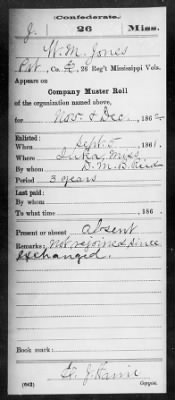 (Confederate.)
J. 26 Miss.
W. M. Jones
Pvt, Co. 26 Reg't Mississippi Vols.
Appears on
Company Muster Roll
of the organization named above,
for Nov. & Dec., 186
Enlisted:
When Sept. 5, 1861.
Where Iuka, Miss.
By whom D. M. B.
Period 3 years
Last paid:
By whom
To what time , 186 .
Present or absent Absent
Remarks: Not rejoined since
exchanged.
Book mark:
J.
(642) Copyist.